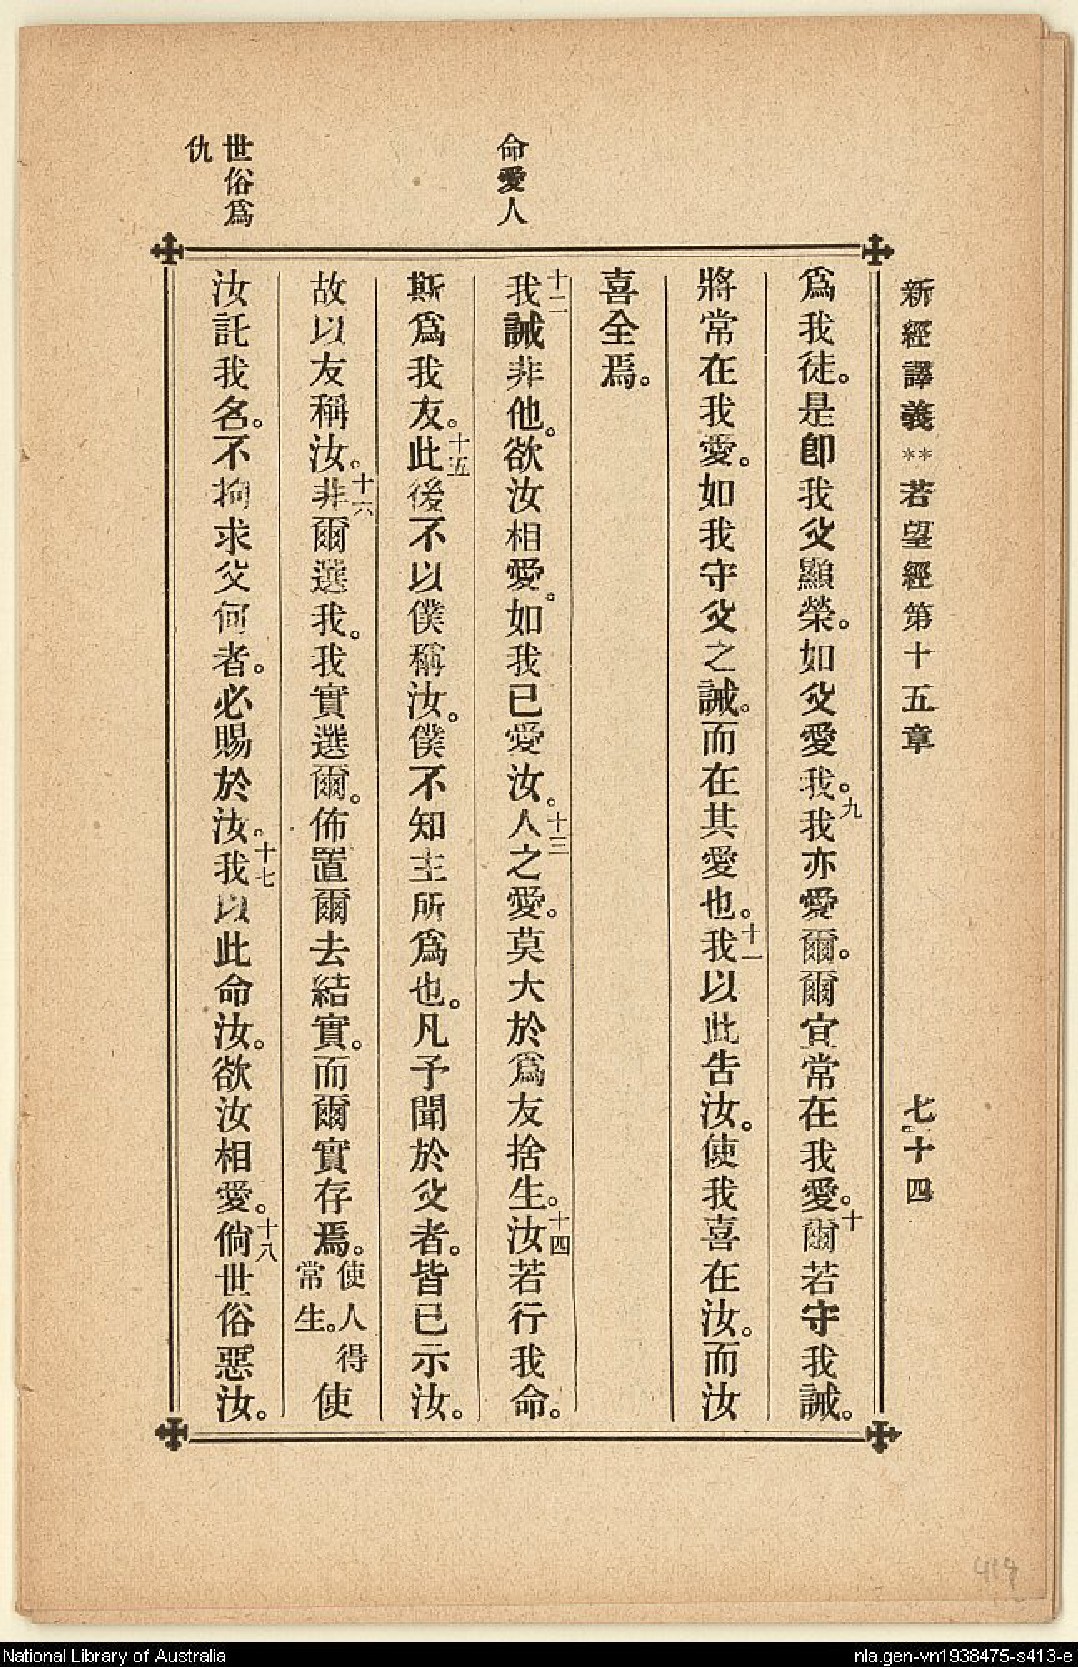 新經譯義**若望經第十五章 七十四
爲我徒。是卽我父顯榮。如父愛我。九我亦愛爾。爾宜常在我愛。十爾若守我誡。
將常在我愛。如我守父之誡。而在其愛也。十一我以此告汝。使我喜在汝。而汝
喜全焉。
命愛人
十二我誡非他。欲汝相愛。如我已愛汝。十三人之愛。莫大於爲友捨生。十四汝若行我命。
斯爲我友。十五此後不以僕稱汝。僕不知主所爲也。凡予聞於父者。皆已示汝。
故以友稱汝。十六非爾選我。我實選爾。佈置爾去結實。而爾實存焉。使人得常生。使
世俗爲
仇
汝託我名。不拘求父何者。必賜於汝。十七我以此命汝。欲汝相愛。十八倘世俗惡汝。
414
National Library of Australia
nla.gen-vn1938475-s413-e